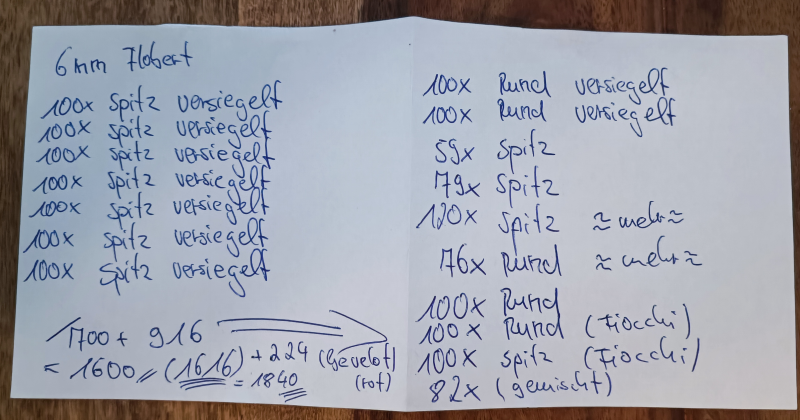 6mm Flobert
100x Spitz versiegelt
100x Spitz versiegelt
100x Spitz versiegelt
100x Spitz versiegelt
100x Spitz versiegelt
100x Spitz versiegelt
100x Spitz versiegelt
700 + 916
= 1600 (1616) + 224 (Gevelot)
= 1840 (rot)
100x Rund versiegelt
100x Rund versiegelt
59x Spitz
79x Spitz
120x Spitz ≈mehr≈
76x Rund ≈mehr≈
100x Rund
100x Rund (Fiocchi)
100x Spitz (Fiocchi)
82x (gemischt)